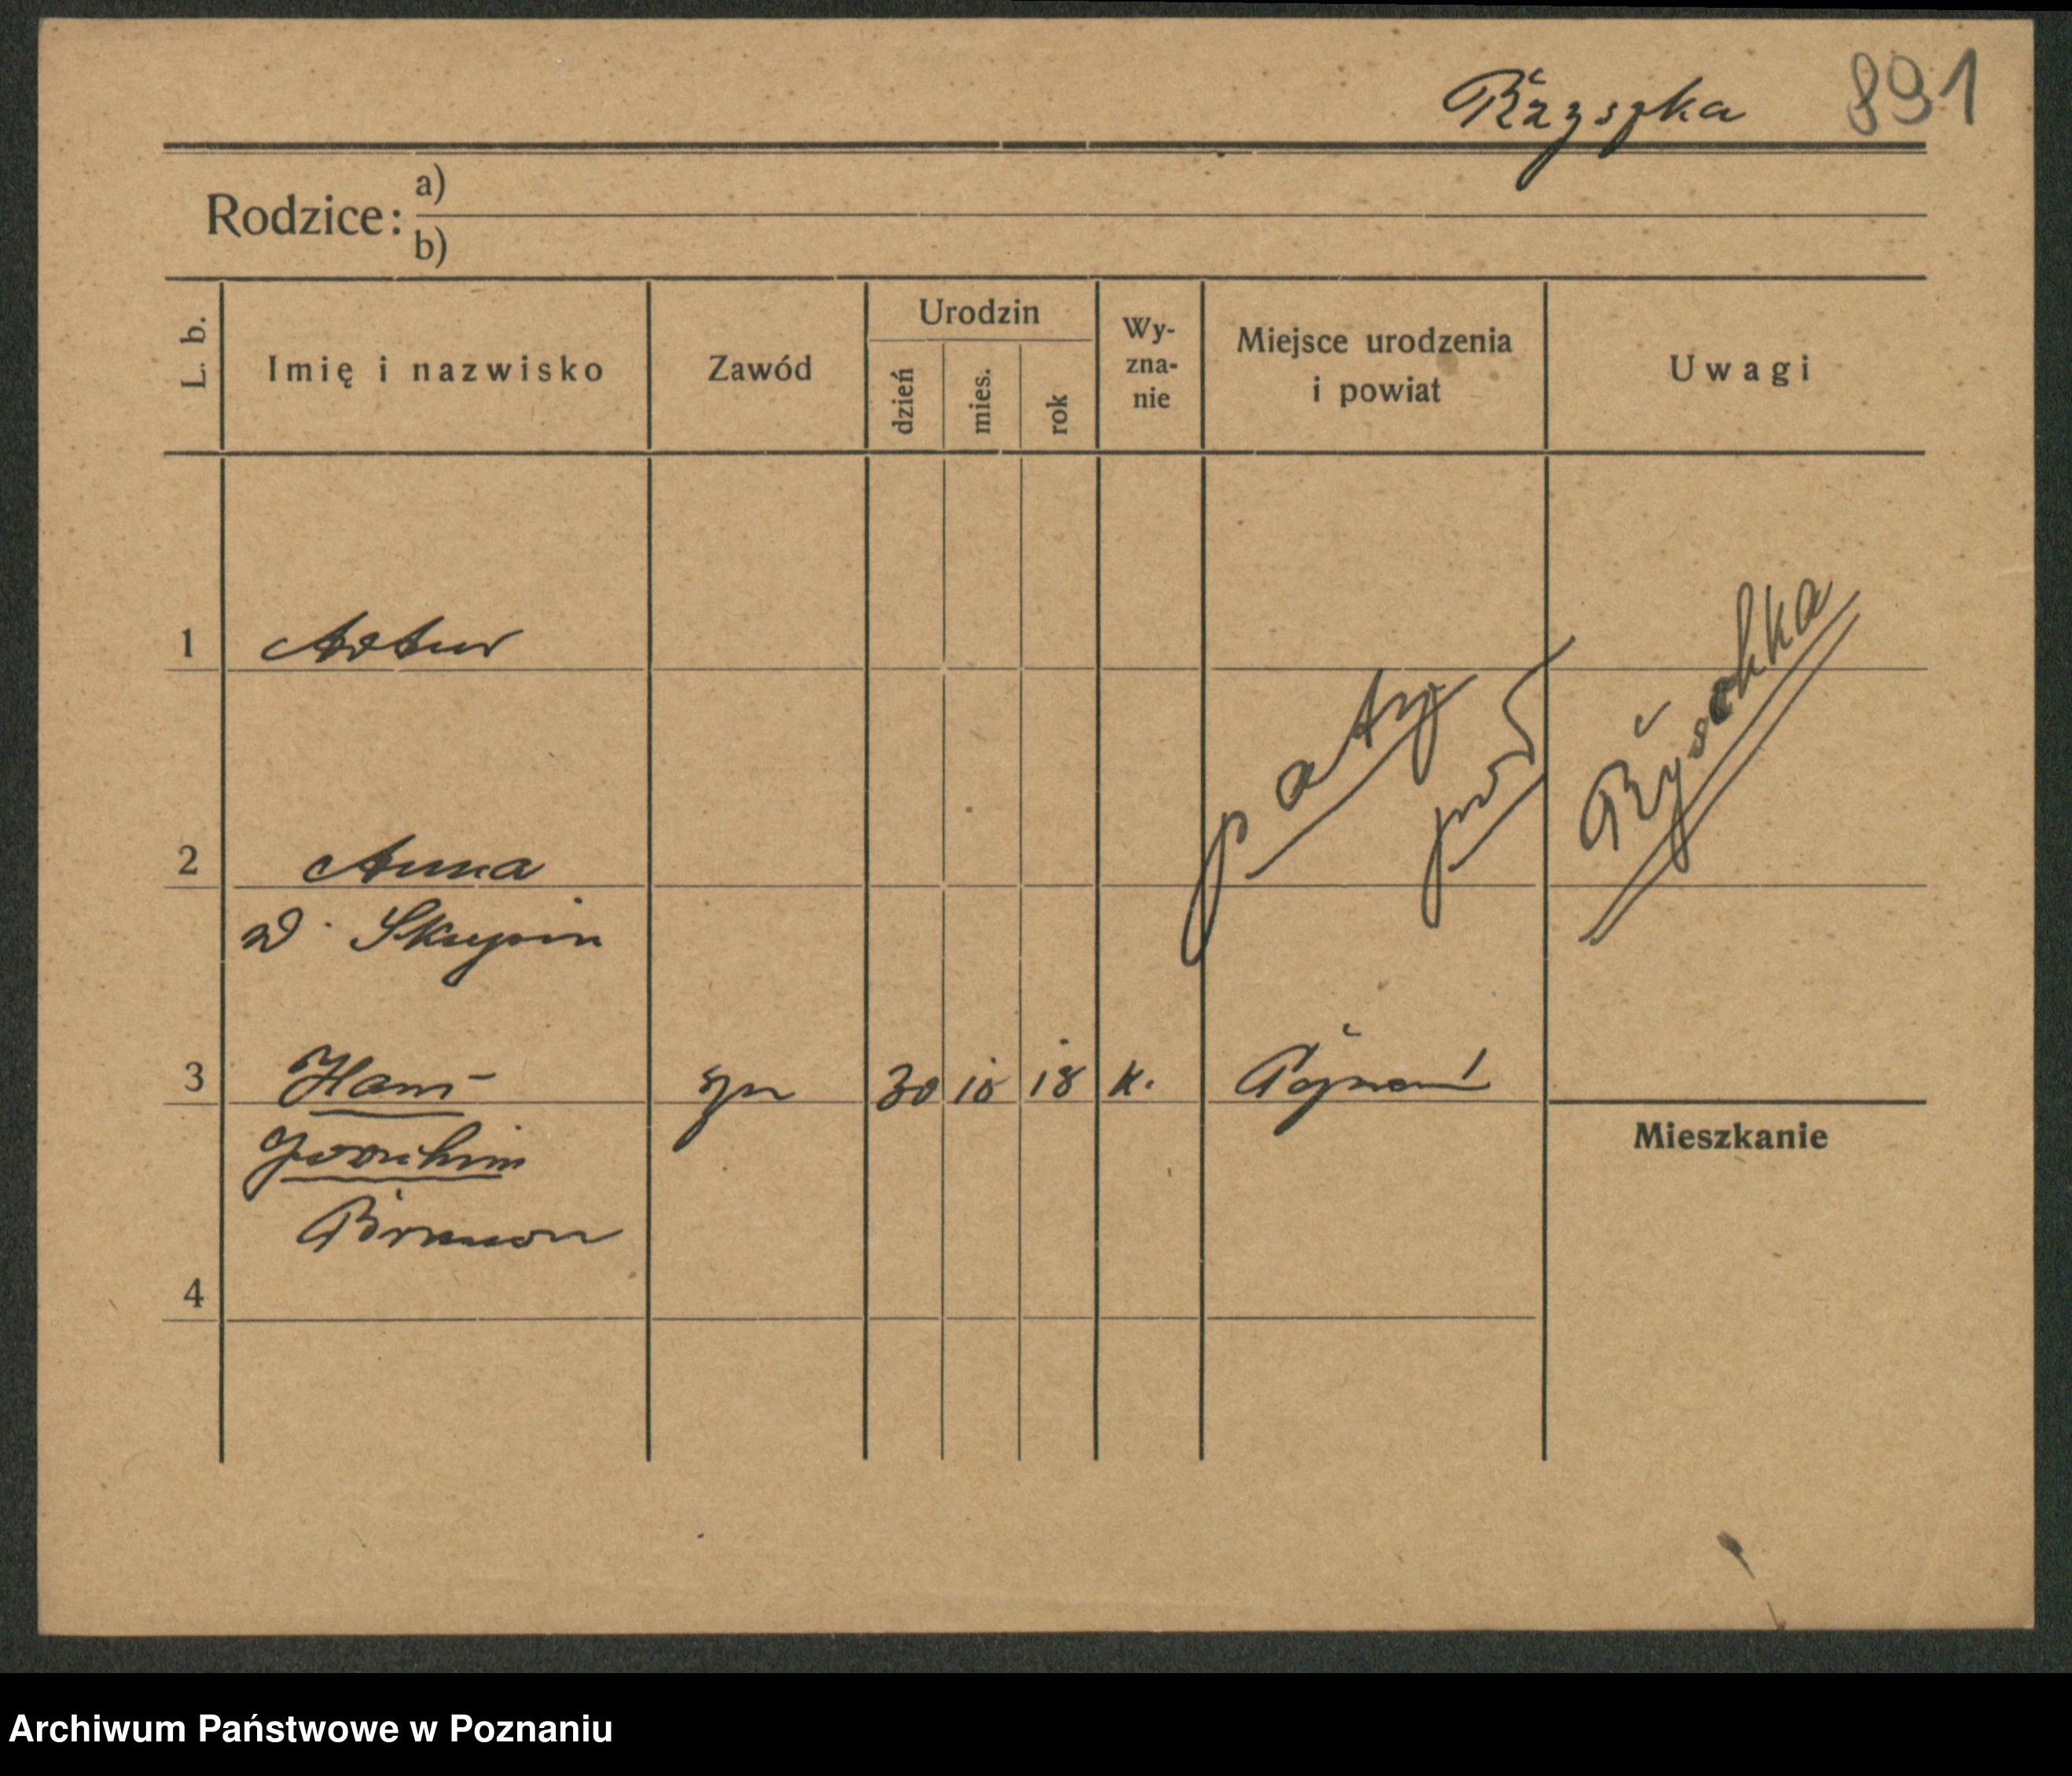 Rzyszka 891
Rodzice: a)
b)
L. b. Imię i nazwisko Zawód Urodzin dzień mies. rok Wy-zna-nie Miejsce urodzenia i powiat Uwagi
1 Artur
patrz pod Ryschka
2 Anna
z d. Skupin
3 Hans syn 30 10 18 k. Poznań
Joachim
Brunon
Mieszkanie
4
Archiwum Państwowe w Poznaniu